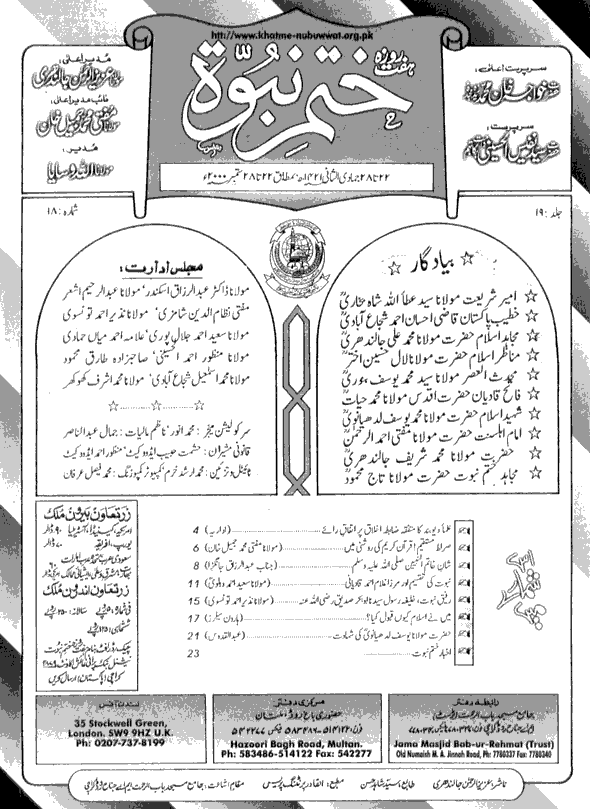 http://www.khatme-nubuwwat.org.pk
ہفت روزہ
ختم نبوۃ
مدیر اعلیٰ:
مولانا عزیز الرحمٰن جالندھری
نائب مدیر اعلیٰ:
مفتی محمد جمیل خان
مدیر:
مولانا اللہ وسایا
سرپرست اعلیٰ:
سرپرست:
۲۲ تا ۲۸ جمادی الثانی ۱۴۲۱ھ بمطابق ۲۲ تا ۲۸ ستمبر ۲۰۰۰ء
جلد: ۱۹
شمارہ: ۱۸
بیاد گار
امیر شریعت مولانا سید عطاء اللہ شاہ بخاریؒ
خطیب پاکستان قاضی احسان احمد شجاع آبادیؒ
مجاہد اسلام حضرت مولانا محمد علی جالندھریؒ
مناظر اسلام حضرت مولانا لال حسین اخترؒ
محدث العصر مولانا سید محمد یوسف بنوریؒ
فاتح قادیان حضرت اقدس مولانا محمد حیاتؒ
شہید اسلام حضرت مولانا محمد یوسف لدھیانویؒ
امام اہلسنت حضرت مولانا مفتی احمد الرحمٰنؒ
حضرت مولانا محمد شریف جالندھریؒ
مجاہد ختم نبوت حضرت مولانا تاج محمودؒ
مجلس ادارت:
مولانا ڈاکٹر عبدالرزاق اسکندر' مولانا عبدالرحیم اشعر
مفتی نظام الدین شامزی' مولانا نذیر احمد تونسوی
مولانا سعید احمد جلال پوری' علامہ احمد میاں حمادی
مولانا منظور احمد الحسینی' صاحبزادہ طارق محمود
مولانا محمد اسمٰعیل شجاع آبادی' مولانا محمد اشرف کھوکھر
سرکولیشن منیجر: محمد انور' ناظم مالیات: جمال عبدالناصر
قانونی مشیران: حشمت حبیب ایڈووکیٹ' منظور احمد ایڈووکیٹ
ٹائٹل و تزئین: محمد ارشد خرم' کمپیوٹر کمپوزنگ: محمد فیصل عرفان
علماء دیوبند کا متفقہ ضابطہ اخلاق پر اتفاق رائے (اداریہ) 4
صراط مستقیم! قرآن کریم کی روشنی میں (مولانا مفتی محمد جمیل خان) 6
شان خاتم النبیین صلی اللہ علیہ وسلم 8
نبوت کی تقسیم اور مرزا غلام احمد قادیانی 11
رفیق نبوت، خلیفہ رسول سیدنا ابوبکر صدیق رضی اللہ عنہ (مولانا نذیر احمد تونسوی) 15
میں نے اسلام کیوں قبول کیا؟ 17
حضرت مولانا یوسف لدھیانویؒ کی شہادت (عبدالقدوس) 21
اخبار ختم نبوت 23
زر تعاون بیرون ملک
زر تعاون اندرون ملک
لندن آفس
35 Stockwell Green,
London. SW9 9HZ U.K.
Ph: 0207-737-8199
مرکزی دفتر
حضوری باغ روڈ، ملتان
Hazoori Bagh Road, Multan.
Ph: 583486-514122 Fax: 542277
رابطہ دفتر
Jama Masjid Bab-ur-Rehmat (Trust)
Old Numaish M. A. Jinnah Road, Ph: 7780337 Fax: 7780340
ناشر: عزیز الرحمٰن جالندھری طابع: سید شاہد حسن مطبع: القادر پرنٹنگ پریس